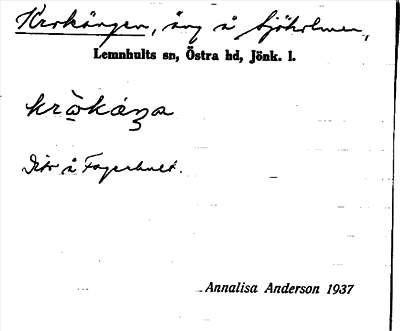 Krokängen, äng å Sjöholmen,
Lemnhults sn, Östra hd, Jönk. l.
kròkáŋa
Dito å Fagerhult.
Annalisa Anderson 1937